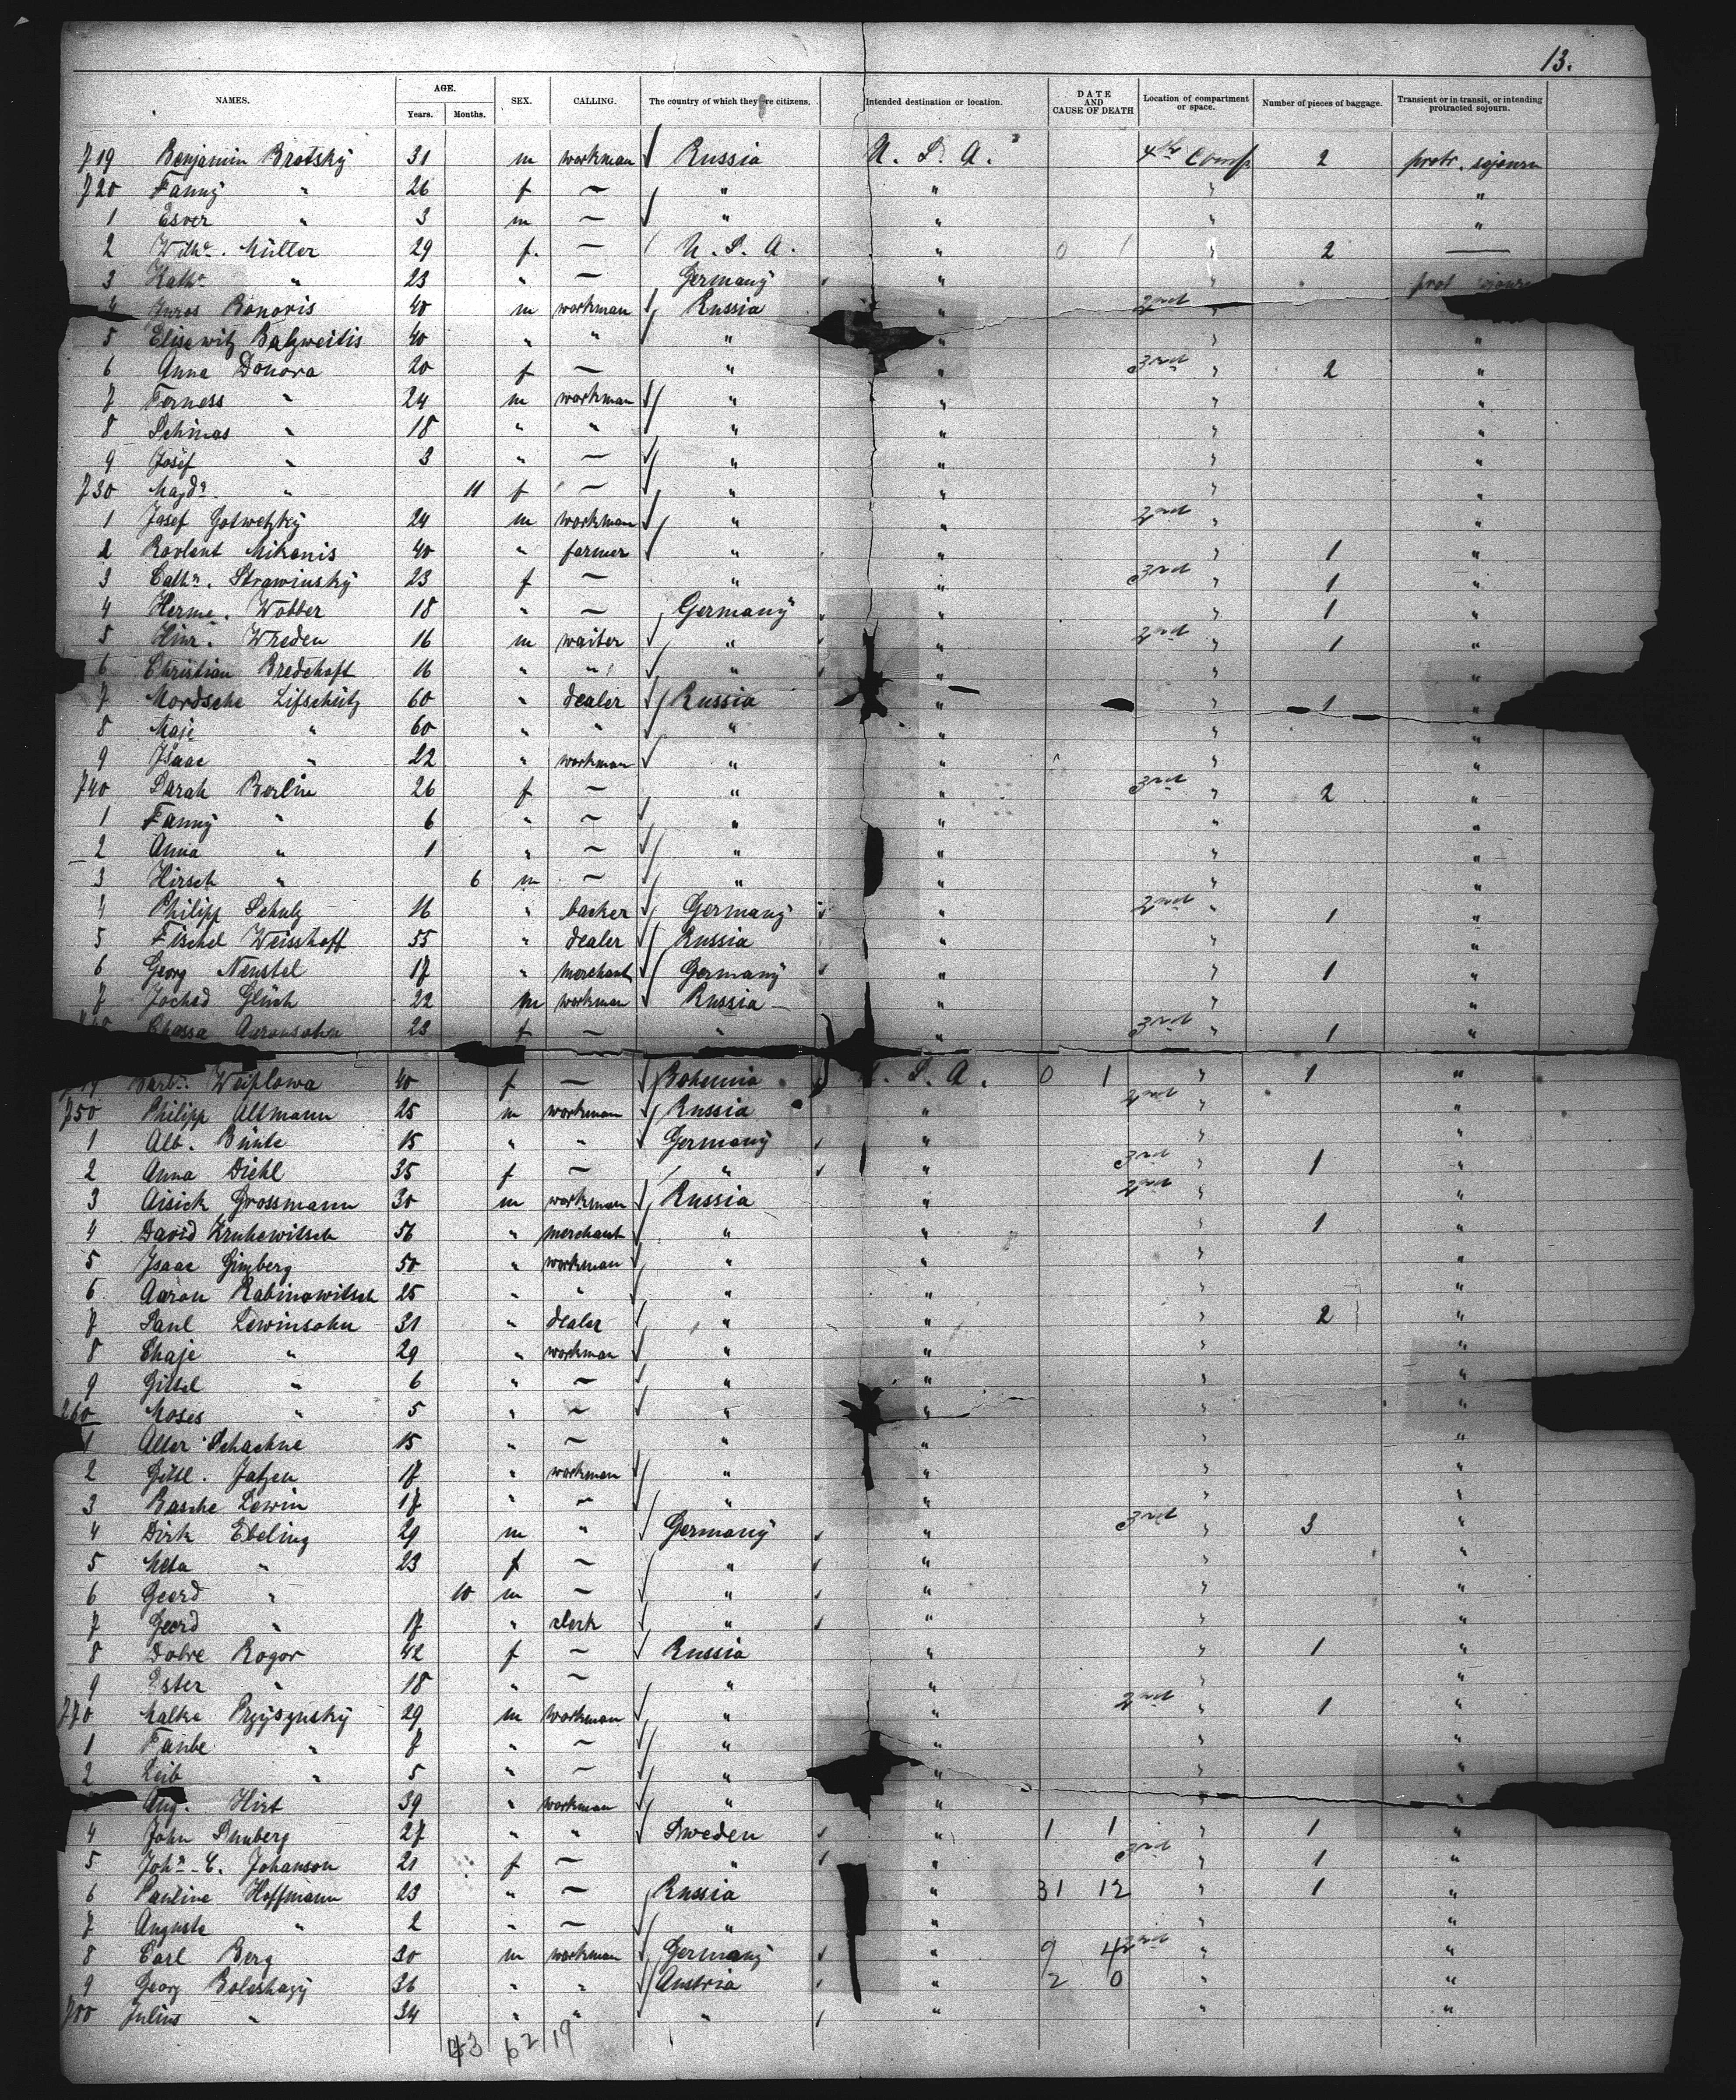 13.
NAMES. AGE. Years. Months. SEX. CALLING. The country of which they are citizens. Intended destination or location. DATE AND CAUSE OF DEATH Location of compartment or space. Number of pieces of baggage. Transient or in transit, or intending protracted sojourn.
719 Benjamin Brotsky 31 m workman Russia U. S. A. 4th Comp 2 protr. sojourn
720 Fanny " 26 f — " " " "
1 Esver " 3 m — " " " "
2 Wilhe. Müller 29 f. — U. S. A. " 0 1 " 2 —
3 Kath. " 23 " — Germany " " prot
4 Juros Bonoris 40 m workman Russia 2nd "
5 Elisewitz Balzweitis 40 " " " " " "
6 Anna Donora 20 f — " " 3rd " 2 "
7 Ferness " 24 m workman " " " "
8 Schinas " 18 " " " " " "
9 Josef " 3 " — " " " "
730 Magda. " 11 f — " " " "
1 Josef Gotwetzky 24 m workman " " 2nd " "
2 Rovlent Mikonis 40 " farmer " " " 1 "
3 Catha. Strawinsky 23 f — " " 3rd " 1 "
4 Herme. Wobber 18 " — Germany " " 1 "
5 Hinr. Wreden 16 m waiter " " 2nd " 1 "
6 Christian Bredehoft 16 " " " " " "
7 Mordsche Lifschütz 60 " dealer Russia " " 1 "
8 Maje " 60 " " " " " "
9 Isaac " 22 " workman " " " "
740 Sarah Berlin 26 f — " " 3rd " 2 "
1 Fanny " 6 " — " " " "
2 Anna " 1 " — " " " "
3 Hirsch " 6 m — " " " "
4 Philipp Schulz 16 " backer Germany " 2nd " 1 "
5 Fischel Weisshoff 55 " dealer Russia " " "
6 Georg Neustel 17 " merchant Germany " " 1 "
7 Jochad Glück 22 m workman Russia — " " "
Chassa Aaronsohn 23 f — " " 3rd " 1 "
Barb. Weiplowa 40 f — Bohemia S. A. 0 1 " 1 "
750 Philipp Altmann 25 m workman Russia " 2nd " "
1 Alb. Bünte 15 " " Germany " "
2 Anna Diehl 35 f — " " 3rd " 1 "
3 Aisick Grossmann 30 m workman Russia " 2nd " "
4 David Kruhewitsch 56 " merchant " " " 1 "
5 Isaac Gimberg 50 " workman " " " "
6 Aaron Rabinowitsch 25 " " " " " "
7 Saul Lewinsohn 31 " dealer " " " 2 "
8 Chaje " 29 " workman " " " "
9 Gittel " 6 " — " " " "
760 Moses " 5 " — " " " "
1 Alter Schachne 15 " — " " " "
2 Gittl. Jatzen 17 " workman " " " "
3 Rasche Lewin 17 " — " " " "
4 Dirk Ebeling 29 m " Germany " 3rd " 3 "
5 Meta " 23 f — " " " "
6 Geerd " 10 m — " " " "
7 Geerd " 17 " clerk " " " "
8 Dobre Rogor 42 f — Russia " " 1 "
9 Ester " 18 " — " " " "
770 Malke Przysynsky 29 m workman " " 2nd " 1 "
1 Faube " 7 " — " " " "
2 Leib " 5 " — " " " "
Aug. Hirt 39 " workman " " "
4 John Runberg 27 " " Sweden " 1 1 " 1 "
5 Joha. C. Johanson 21 f — " " 3rd " 1 "
6 Pauline Hoffmann 23 " — Russia " 31 12 " 1 "
7 Auguste " 2 " — " " " "
8 Carl Berg 30 m workman Germany " 9 4 2nd " "
9 Georg Boleshazy 36 " " Austria " 2 0 " "
780 Julius " 34 " " " " " "
43 62 19